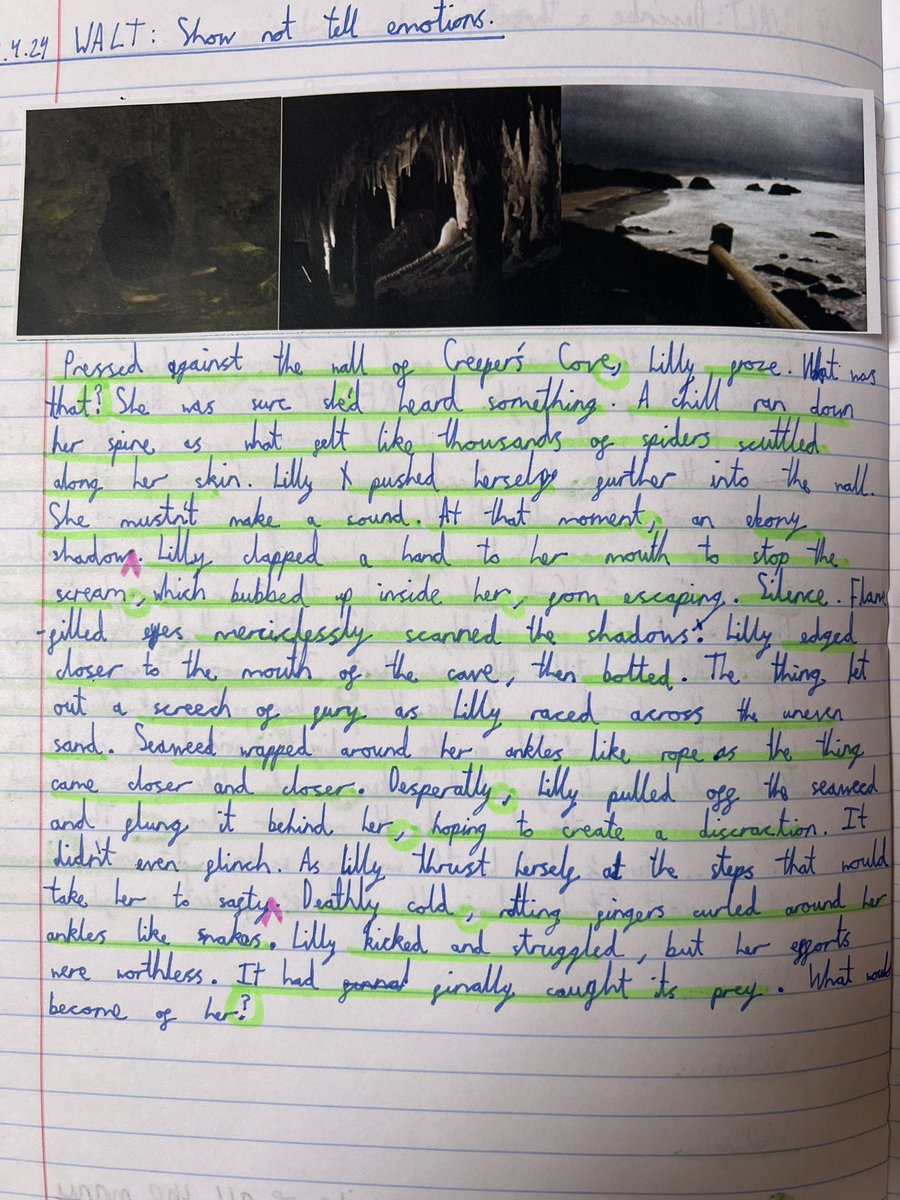 .4.24 WALT: Show not tell emotions.
Pressed against the wall of Creeper's Cove, Lilly froze. What was
that? She was sure she'd heard something. A chill ran down
her spine as what felt like thousands of spiders scuttled
along her skin. Lilly pushed herself further into the wall.
She mustn't make a sound. At that moment, an ebony
shadow. Lilly clapped a hand to her mouth to stop the
scream, which bubbed up inside her, from escaping. Silence. Flame
-filled eyes mercislessly scanned the shadows. Lilly edged
closer to the mouth of the cave, then bolted. The thing let
out a screech of fury as Lilly raced across the uneven
sand. Seaweed wrapped around her ankles like rope as the thing
came closer and closer. Desperatly, Lilly pulled off the seaweed
and flung it behind her, hoping to create a discraction. It
didn't even flinch. As Lilly thrust herself at the steps that would
take her to safty. Deathly cold, rotting fingers curled around her
ankles like snakes. Lilly kicked and struggled, but her efforts
were worthless. It had finally caught its prey. What would
become of her?